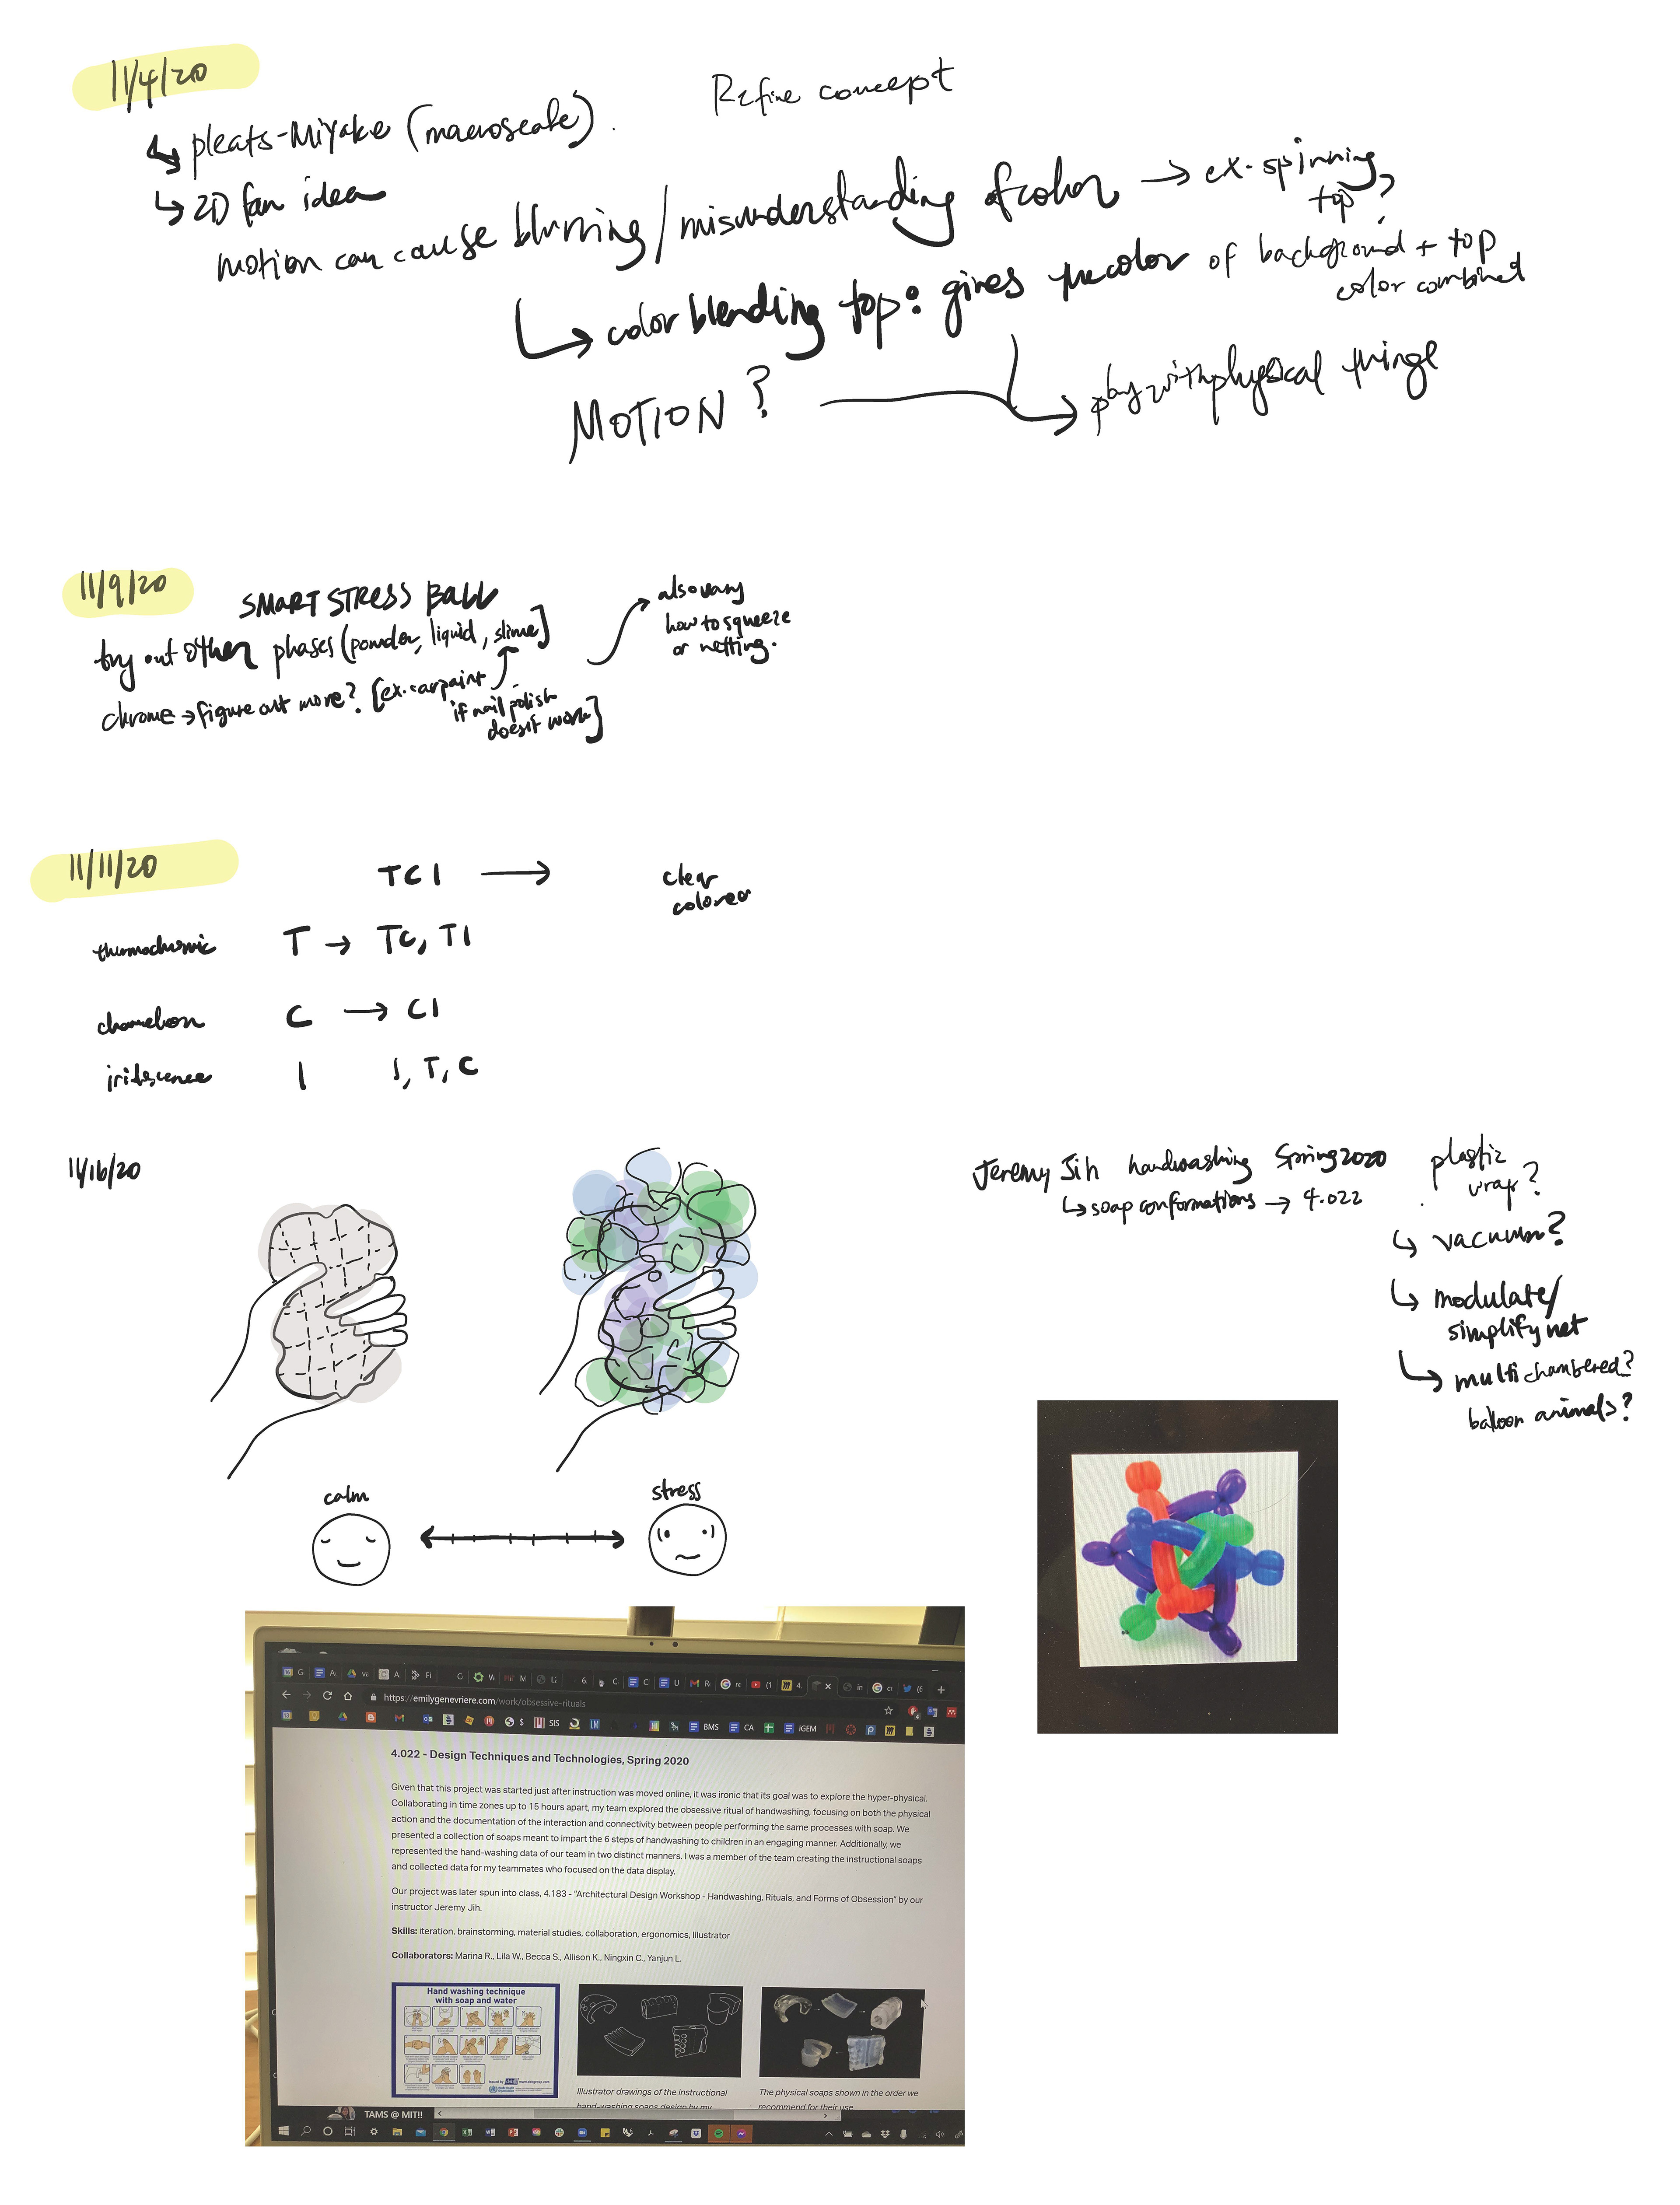 11/4/20
Refine concept
↳ pleats-Miyake (macroscale).
↳ 2D fan idea
motion can cause blurring/misunderstanding of color → ex. spinning
top?
↳ color blending top: gives the color of background + top
color combined
MOTION?
play with physical things
11/9/20
SMART STRESS BALL
try out other phases (powder, liquid, slime]
chrome → figure out more? [ex. car paint
if nail polish
doesn't work]
also vary
how to squeeze
or netting.
11/11/20
TCI →
clear
colored
thermochromic T → TC, TI
chameleon C → CI
iridescence I I, T, C
11/16/20
Jeremy Jih handwashing Spring 2020
↳ soap conformations → 4.022
plastic
wrap?
↳ vacuum?
↳ modulate/
simplify net
↳ multichambered?
balloon animals?
calm
stress
https://emilygenevriere.com/work/obsessive-rituals
SIS
LM
BMS
CA
iGEM
4.022 - Design Techniques and Technologies, Spring 2020
Given that this project was started just after instruction was moved online, it was ironic that its goal was to explore the hyper-physical.
Collaborating in time zones up to 15 hours apart, my team explored the obsessive ritual of handwashing, focusing on both the physical
action and the documentation of the interaction and connectivity between people performing the same processes with soap. We
presented a collection of soaps meant to impart the 6 steps of handwashing to children in an engaging manner. Additionally, we
represented the hand-washing data of our team in two distinct manners. I was a member of the team creating the instructional soaps
and collected data for my teammates who focused on the data display.
Our project was later spun into class, 4.183 - "Architectural Design Workshop - Handwashing, Rituals, and Forms of Obsession" by our
instructor Jeremy Jih.
Skills: iteration, brainstorming, material studies, collaboration, ergonomics, Illustrator
Collaborators: Marina R., Lila W., Becca S., Allison K., Ningxin C., Yanjun L.
Hand washing technique
with soap and water
Illustrator drawings of the instructional
hand-washing soaps design by my
The physical soaps shown in the order we
recommend for their use
TAMS @ MIT!!